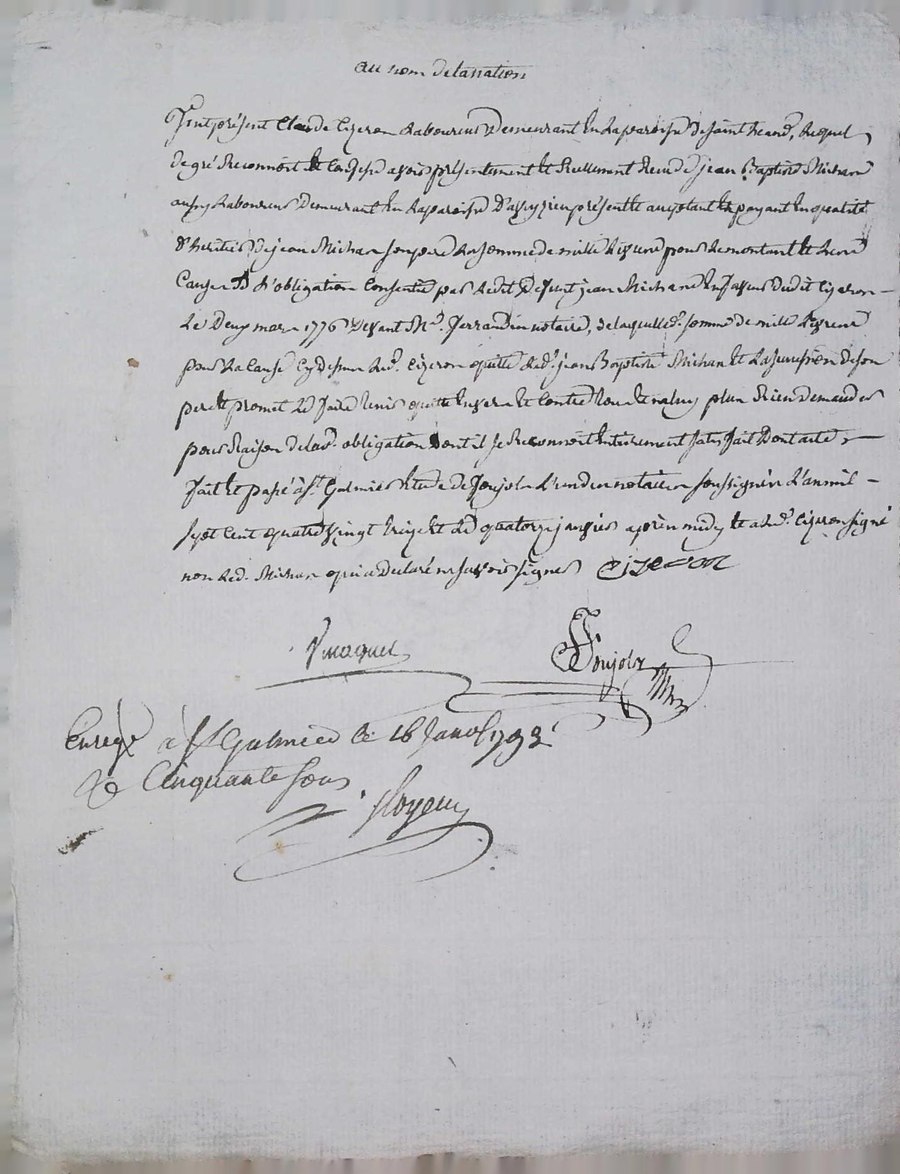 au nom de la nation
fut présent Claude Cizeron Laboureur demeurant en la paroisse de Saint heand, lequel
de gré Reconnoit et Confesse avoir présentement et Reellement Receu de jean Baptiste Michan
aussy Laboureur demeurant en la paroisse d'aveyzieu présent et acceptant et payant en qualité
d'heritier de jean Michan son pere La somme de mille Livres pour le montant et
Causes d'obligation Consentie par ledit défunt jean Michan en faveur dudit Cizeron
Le deux mars 1776 devant Me. ferrandin notaire, de laquelle d. somme de mille Livres
pour La Cause Cy dessus led. Cizeron quitte led. jean Baptiste Michan et La succession de son
pere et promet Le faire tenir quitte envers et Contre tous et ne luy plus Rien demander
pour Raison de lad. obligation dont il se Reconnoit entierement satisfait dont acte
fait et passé à St. Galmier etude de Poujols L'un des notaires soussignés L'an mil
sept Cent quatre vingt treize et Le quatorze janvier après midy et a led. Cizeron signé
non led. Michan qui a declaré ne savoir signer Cizeron
Poujols
Enregé à St Galmier le 16 Janv 1793
Cinquante sous